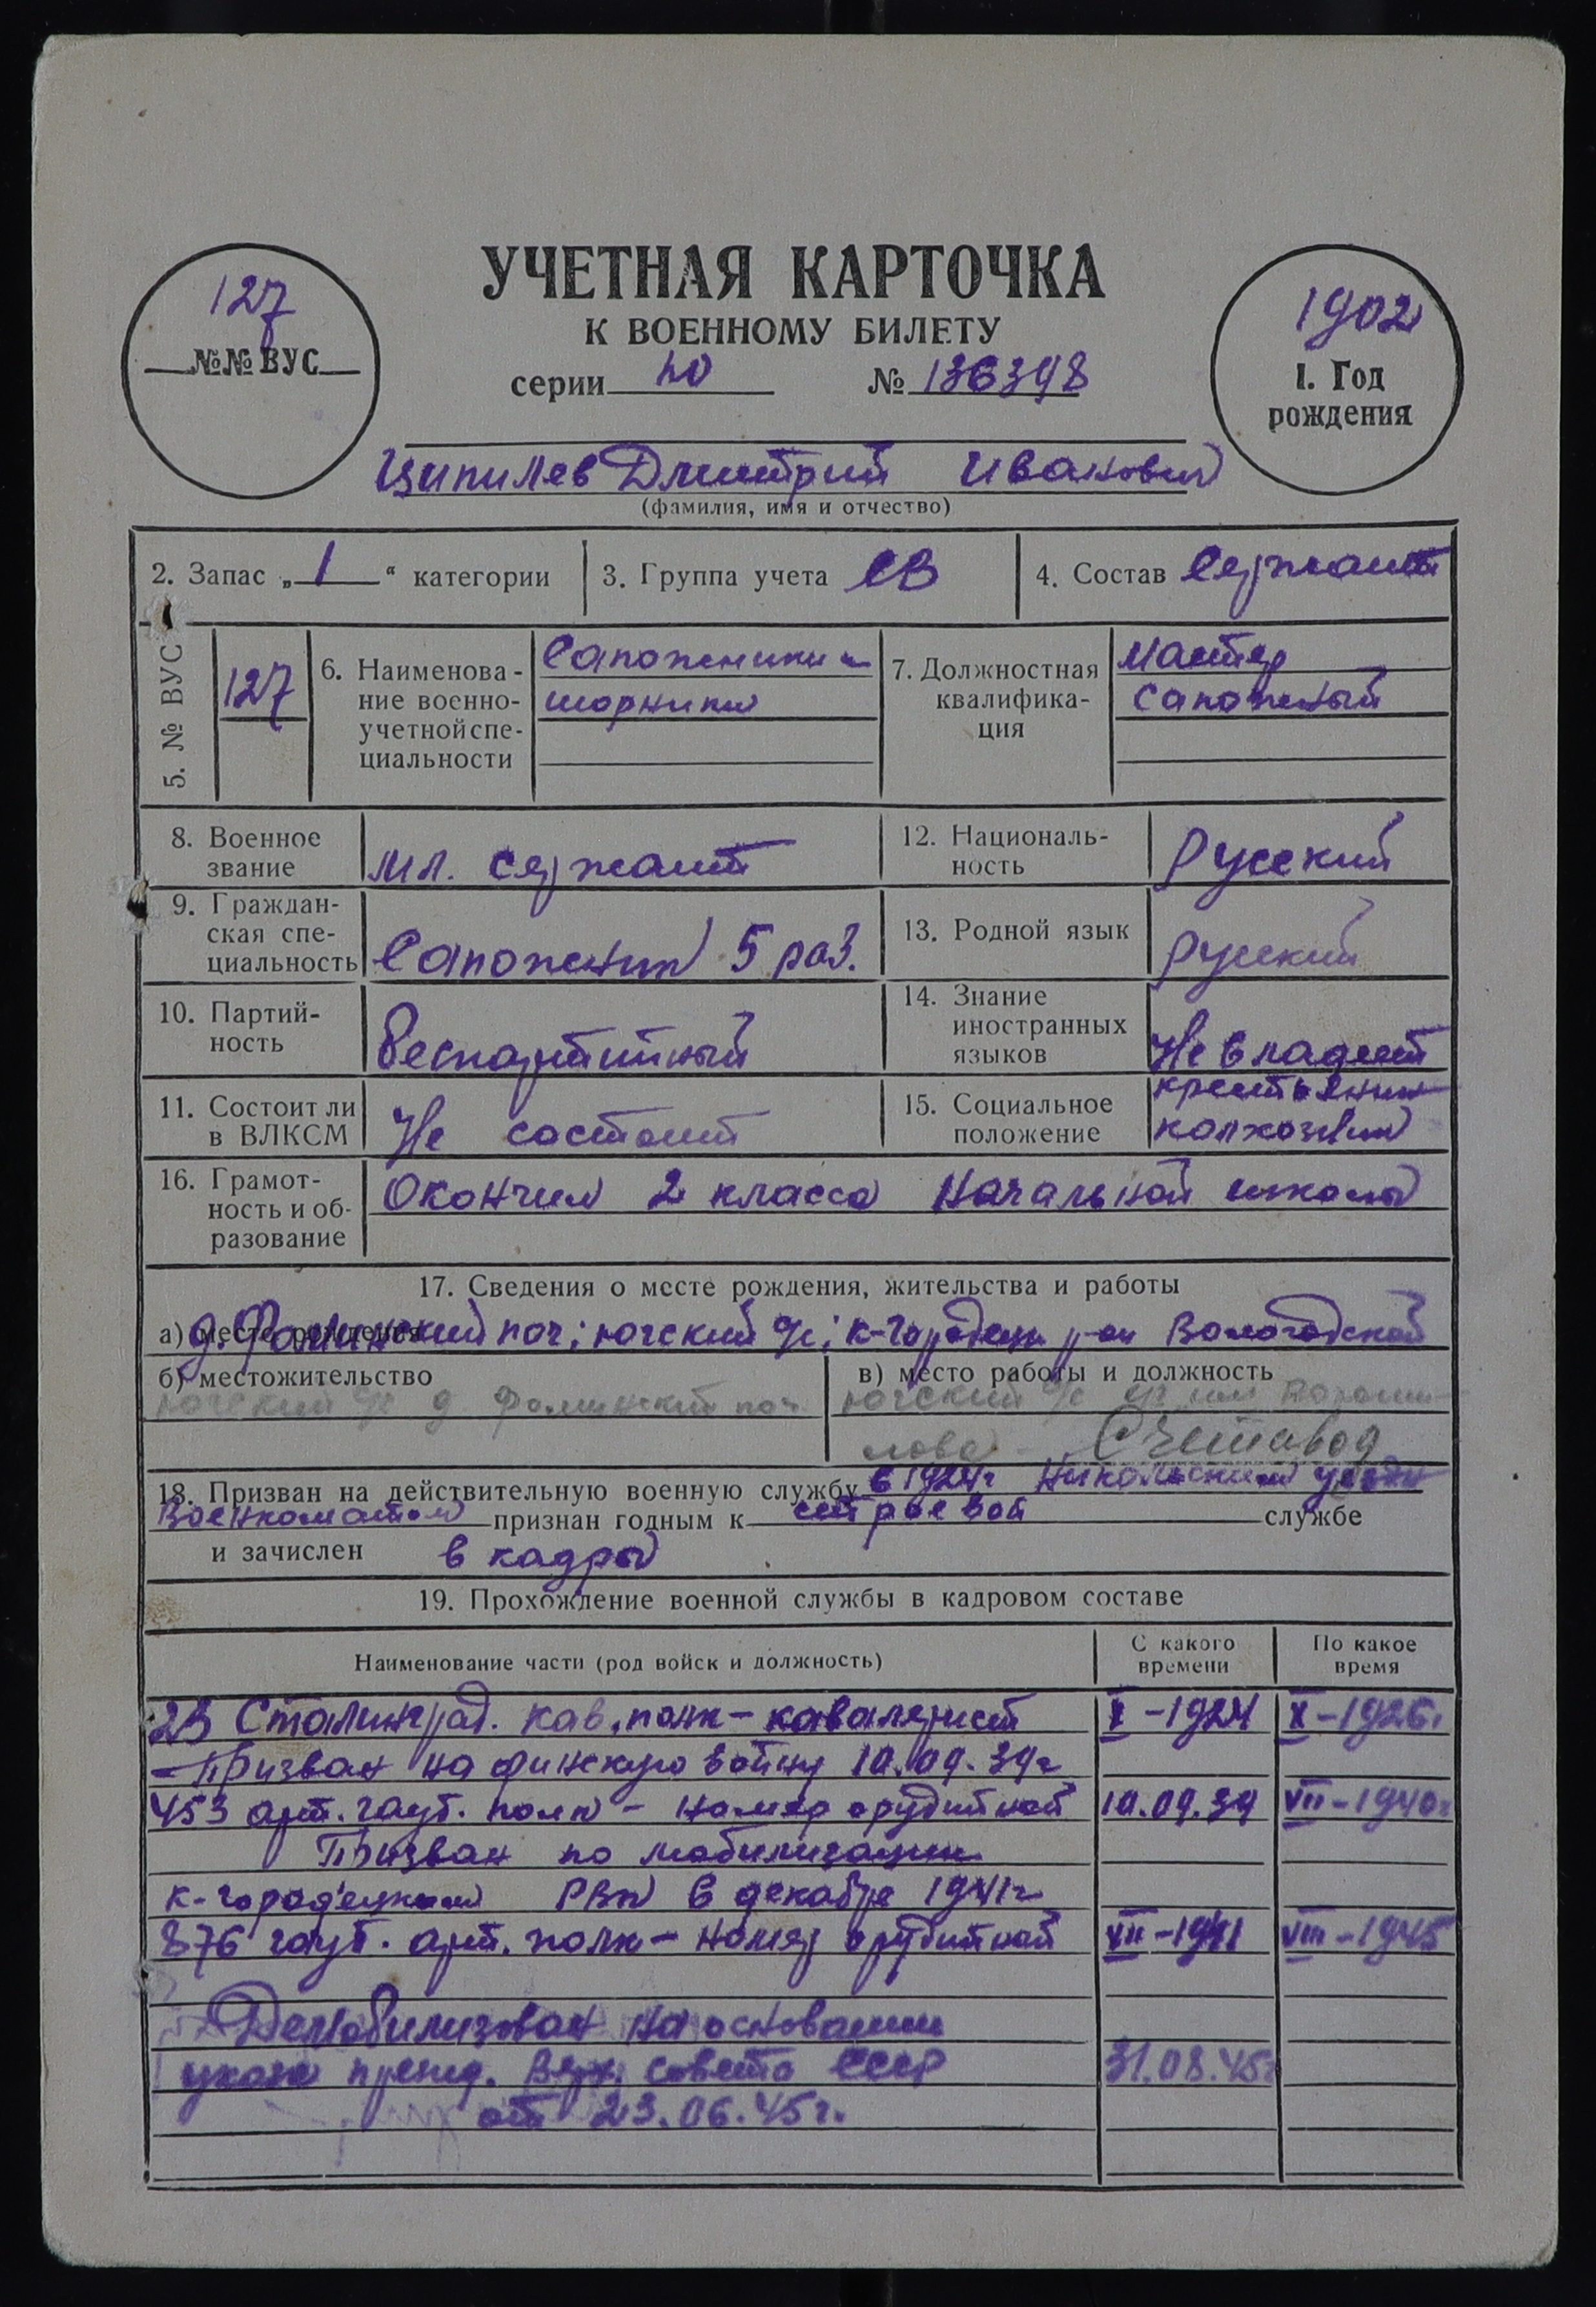 УЧЕТНАЯ КАРТОЧКА
К ВОЕННОМУ БИЛЕТУ
серии № 136398
127
№№ ВУС
1902
1. Год
рождения
Ципилев Дмитрий Иванович
(фамилия, имя и отчество)
2. Запас „ 1 “ категории
3. Группа учета СВ
4. Состав Сержант
5. № ВУС
127
6. Наименова-
ние военно-
учетной спе-
циальности
Сапожники и
шорники
7. Должностная
квалифика-
ция
Мастер
сапожный
8. Военное
звание
мл. сержант
12. Националь-
ность
Русский
9. Граждан-
ская спе-
циальность
Сапожник 5 раз.
13. Родной язык
русский
10. Партий-
ность
беспартийный
14. Знание
иностранных
языков
Не владеет
11. Состоит ли
в ВЛКСМ
Не состоит
15. Социальное
положение
крестьянин
колхозник
16. Грамот-
ность и об-
разование
Окончил 2 класса начальной школы
17. Сведения о месте рождения, жительства и работы
а) место рождения
д. Фоминский поч; ючский с/с; К-Городецк р-он Вологодской
б) местожительство
ючский с/с д. Фоминский поч.
в) место работы и должность
ючский с/с им Вороши-
лова - Счетовод
18. Призван на действительную военную службу в 1924г Никольским уездн
военкоматом признан годным к строевой службе
и зачислен в кадры
19. Прохождение военной службы в кадровом составе
Наименование части (род войск и должность)
С какого
времени
По какое
время
23 Сталинград. кав. полк - кавалерист X - 1924 X - 1926г
- Призван на финскую войну 10.09.39г
453 арт. гауб. полк - номер орудийной 10.09.39 VII - 1940г
Призван по мобилизации
К-Городецким РВК в декабре 1941г
876 гауб. арт. полк - номер орудийной VII - 1941 VIII - 1945
Демобилизован на основании
указа презид. Верх. Совета СССР 31.08.45г
от 23.06.45г.